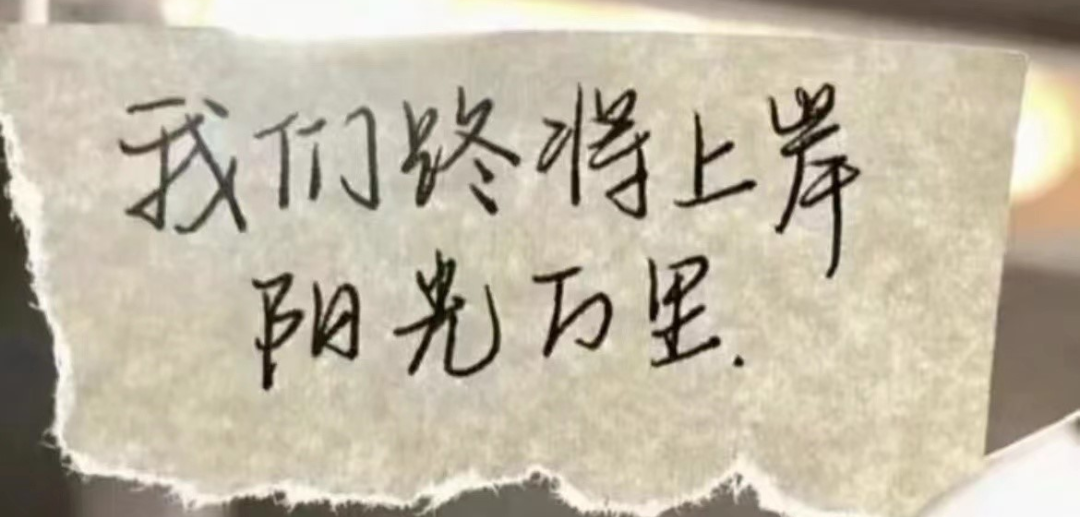 我们终将上岸
阳光万里.